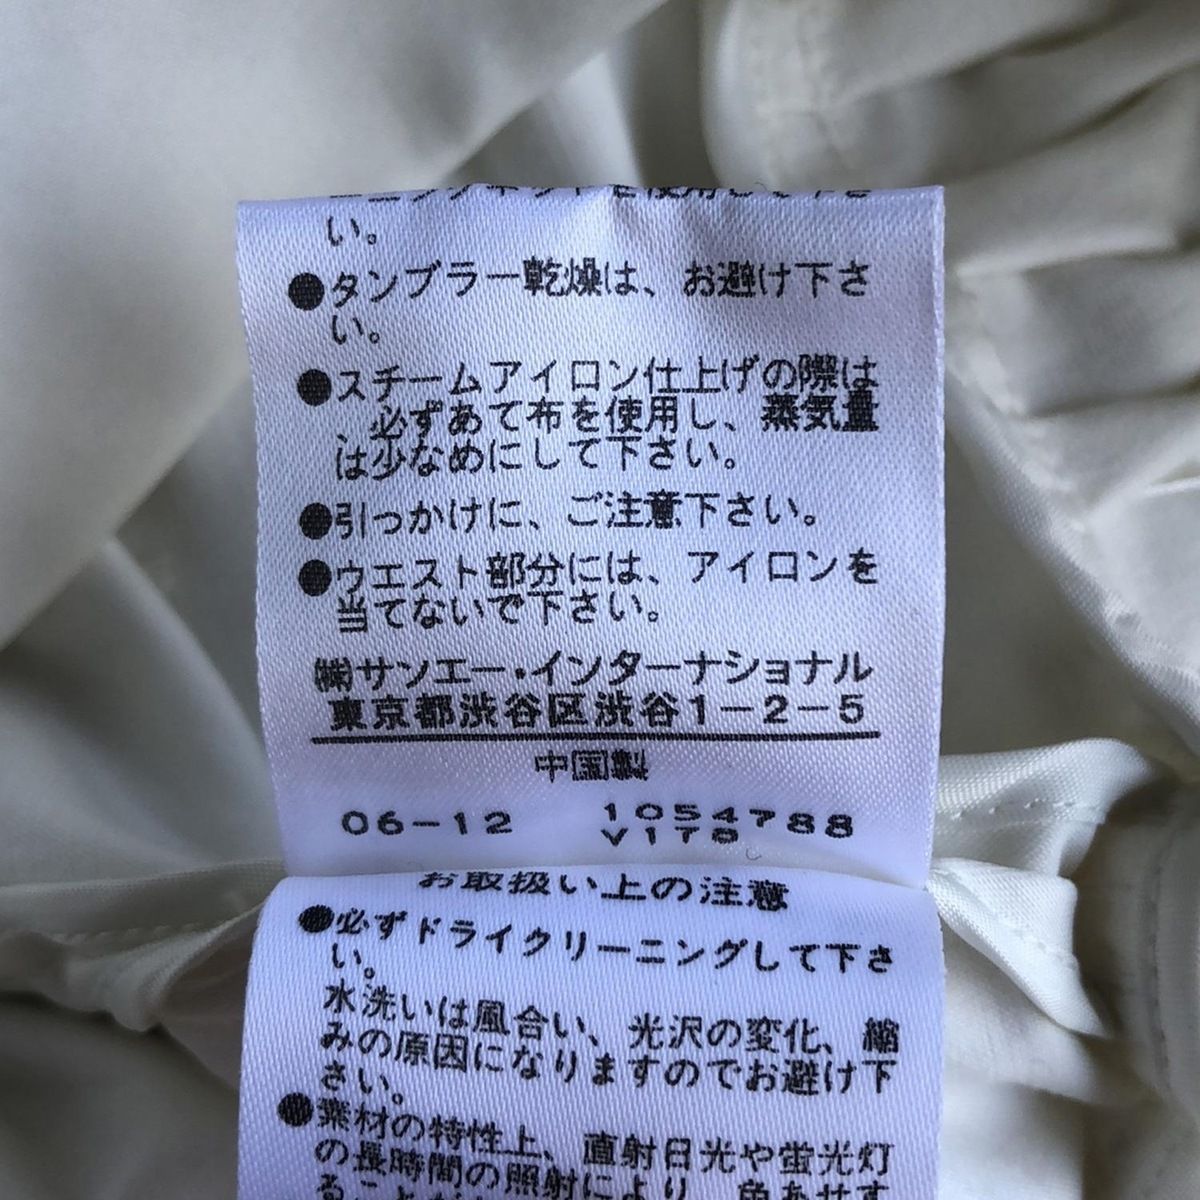 を使用して下さ
い。
●タンブラー乾燥は、お避け下さ
い。
●スチームアイロン仕上げの際は
、必ずあて布を使用し、蒸気量
は少なめにして下さい。
●引っかけに、ご注意下さい。
●ウエスト部分には、アイロンを
当てないで下さい。
㈱サンエー・インターナショナル
東京都渋谷区渋谷1-2-5
中国製
06-12 1054788
V178
お取扱い上の注意
●必ずドライクリーニングして下さ
い。
水洗いは風合い、光沢の変化、縮
みの原因になりますのでお避け下
さい。
●素材の特性上、直射日光や蛍光灯
の長時間の照射により、色あせす
ることが